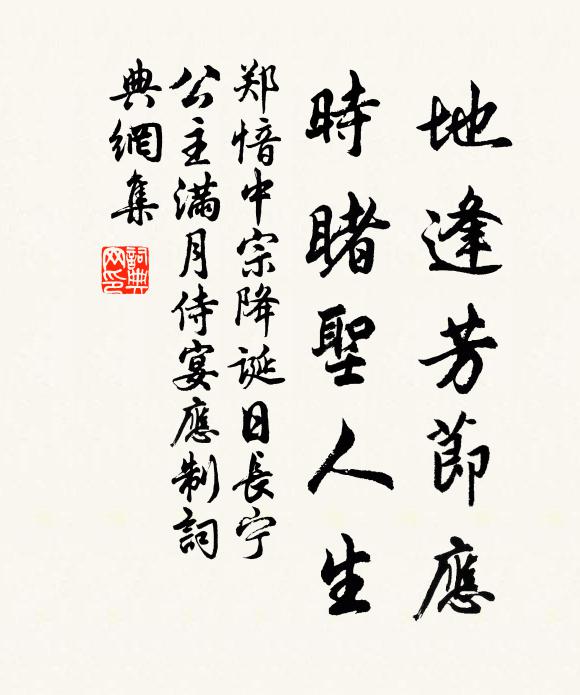 地逢芳節應
時睹聖人生
郑愔中宗降诞日長宁
公主满月侍宴應制詞
典網集
詞典
网印